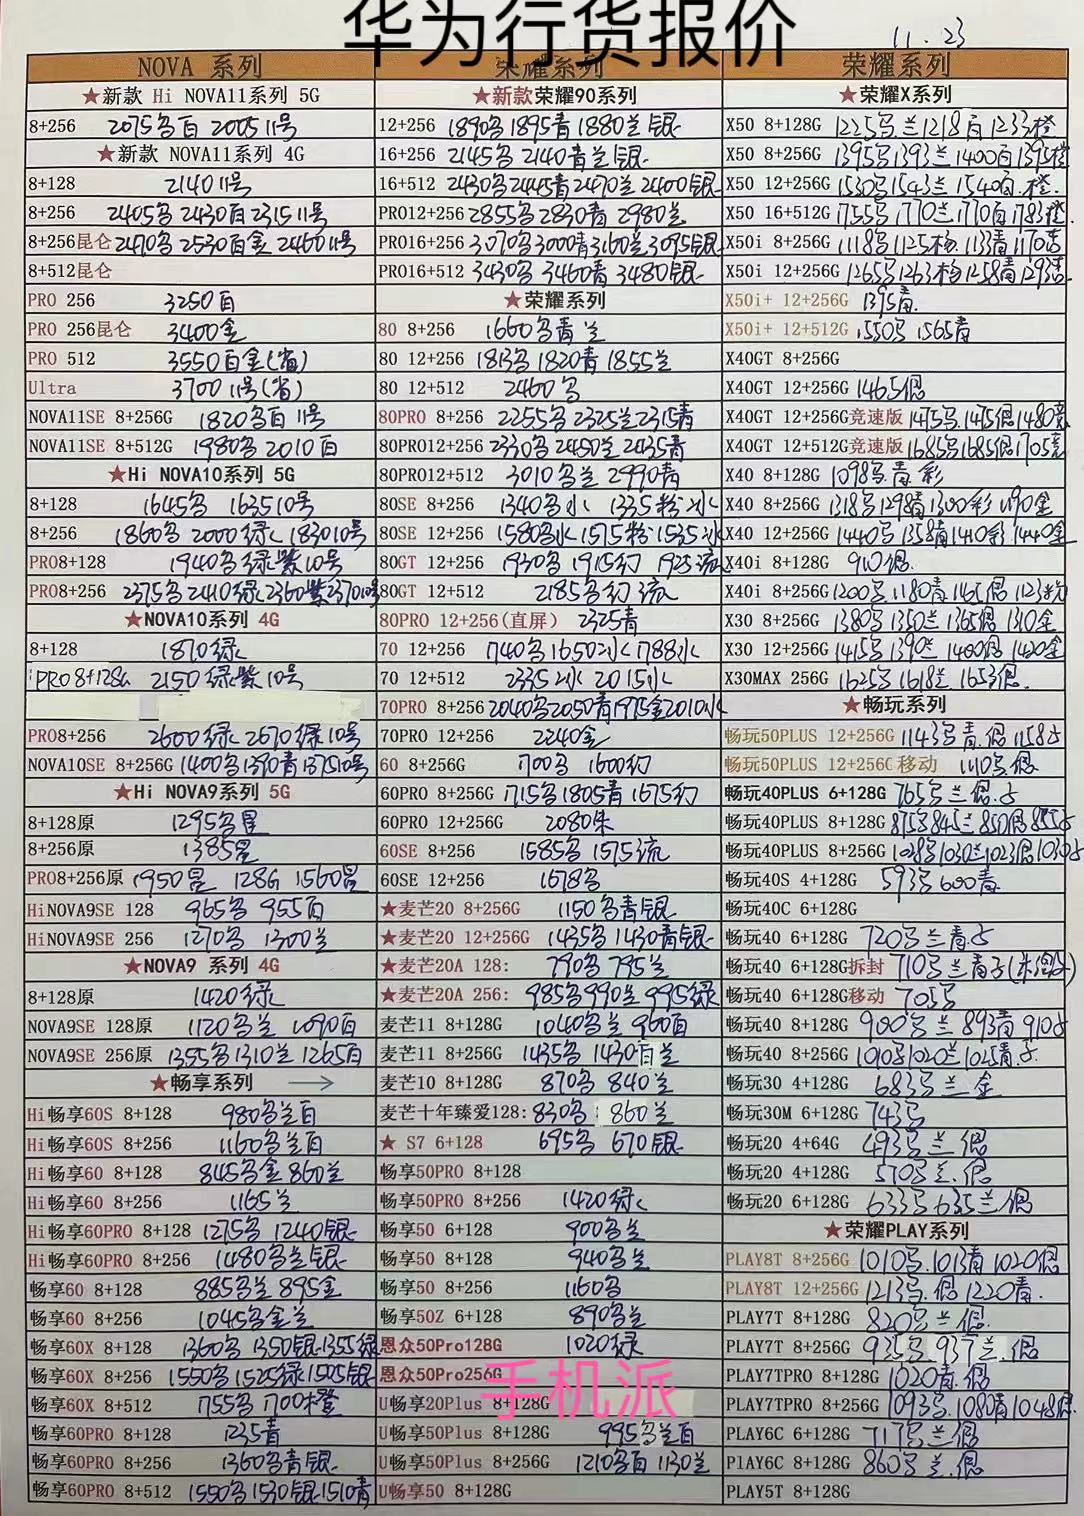 华为行货报价
11.23
NOVA 系列
★新款 Hi NOVA11系列 5G
8+256 2075名白 2005 11号
★新款 NOVA11系列 4G
8+128 2140 11号
8+256 2405名 2430白 2315 11号
8+256昆仑 2470名 2530白金 2460 11号
8+512昆仑
PRO 256 3250白
PRO 256昆仑 3400金
PRO 512 3550白金(省)
Ultra 3700 11号(省)
NOVA11SE 8+256G 1820名白 11号
NOVA11SE 8+512G 1980名 2010白
★Hi NOVA10系列 5G
8+128 1645名 1635 10号
8+256 1860名 2000绿 1830 10号
PRO8+128 1940名绿紫10号
PRO8+256 2375名 2410绿 2360紫 2370 10号
★NOVA10系列 4G
8+128 1870绿
PRO8+128G 2150绿紫10号
PRO8+256 2600绿 2670绿10号
NOVA10SE 8+256G 1400名 1370青 1375 10号
★Hi NOVA9系列 5G
8+128原 1295名星
8+256原 1385星
PRO8+256原 1950星 128G 1560星
HiNOVA9SE 128 965名 955白
HiNOVA9SE 256 1270名 1300兰
★NOVA9 系列 4G
8+128原 1420绿
NOVA9SE 128原 1120名兰 1090白
NOVA9SE 256原 1355名 1310兰 1265白
★畅享系列 →
Hi畅享60S 8+128 980名兰白
Hi畅享60S 8+256 1160名兰白
Hi畅享60 8+128 845名金 860兰
Hi畅享60 8+256 1165兰
Hi畅享60PRO 8+128 1275名 1240银
Hi畅享60PRO 8+256 1480名兰银
畅享60 8+128 885名兰 895金
畅享60 8+256 1045名金兰
畅享60X 8+128 1360名 1350银 1355绿
畅享60X 8+256 1550名 1525绿 1505银
畅享60X 8+512 1755名 1700橙
畅享60PRO 8+128 1235青
畅享60PRO 8+256 1360名青银
畅享60PRO 8+512 1550名 1530银 1510青
荣耀系列
★新款荣耀90系列
12+256 1890名 1895青 1880兰银
16+256 2145名 2140青兰银
16+512 2430名 2445青 2470兰 2400银
PRO12+256 2855名 2830青 2980兰
PRO16+256 3070名 3000青 3160兰 3095银
PRO16+512 3430名 3460青 3480银
★荣耀系列
80 8+256 1660名青兰
80 12+256 1813名 1820青 1855兰
80 12+512 2460名
80PRO 8+256 2255名 2325兰 2315青
80PRO12+256 2330名 2450兰 2435青
80PRO12+512 3010名兰 2990青
80SE 8+256 1340名水 1335粉水
80SE 12+256 1580名水 1575粉 1535水
80GT 12+256 1930名 1915幻 1925流
80GT 12+512 2185名幻流
80PRO 12+256(直屏) 2325青
70 12+256 1740名 1650冰 1788水
70 12+512 2335冰 2015水
70PRO 8+256 2040名 2050青 1975金 2010水
70PRO 12+256 2240金
60 8+256G 1700名 1600幻
60PRO 8+256G 1715名 1805青 1675幻
60PRO 12+256G 2080朱
60SE 8+256 1585名 1575流
60SE 12+256 1678名
★麦芒20 8+256G 1150名青银
★麦芒20 12+256G 1435名 1430青银
★麦芒20A 128: 790名 795兰
★麦芒20A 256: 985名 990兰 995绿
麦芒11 8+128G 1040名兰 960白
麦芒11 8+256G 1435名 1430白兰
麦芒10 8+128G 870名 840兰
麦芒十年臻爱128: 830名 860兰
★ S7 6+128 695名 670银
畅享50PRO 8+128
畅享50PRO 8+256 1420绿
畅享50 6+128 900名兰
畅享50 8+128 940名兰
畅享50 8+256 1160名
畅享50Z 6+128 890名兰
恩众50Pro128G 1020绿
恩众50Pro256G
手机派
U畅享20Plus 8+128G
U畅享50Plus 8+128G 995名兰白
U畅享50Plus 8+256G 1210名白 1130兰
U畅享50 8+128G
荣耀系列
★荣耀X系列
X50 8+128G 1225名兰 1218白 1233橙
X50 8+256G 1395名 1393兰 1400白 1395橙
X50 12+256G 1530名 1543兰 1540白.橙
X50 16+512G 1755名 1770兰 1770白 1783橙
X50i 8+256G 1118名 1125杨 1133青
X50i 12+256G 1265名 1263杨 1258青
X50i+ 12+256G 1395青
X50i+ 12+512G 1550名 1565青
X40GT 8+256G
X40GT 12+256G 1465
X40GT 12+256G竞速版 1475名 1475 1480竞
X40GT 12+512G竞速版 1685名 1685 1705竞
X40 8+128G 1098名青彩
X40 8+256G 1318名 1298青 1300彩 1190金
X40 12+256G 1440名 1358青 1410彩 1440金
X40i 8+128G 910
X40i 8+256G 1200名 1180青
X30 8+256G 1380名 1350兰 1365 1310金
X30 12+256G 1415名 1390兰 1460 1420金
X30MAX 256G 1625名 1618兰 1653
★畅玩系列
畅玩50PLUS 12+256G 1143名青
畅玩50PLUS 12+256G 移动 1110名
畅玩40PLUS 6+128G 765名兰
畅玩40PLUS 8+128G 875名 845兰 850
畅玩40PLUS 8+256G 1028名 1030兰 1023
畅玩40S 4+128G 593名 600青
畅玩40C 6+128G
畅玩40 6+128G 720名兰青
畅玩40 6+128G拆封 710名兰青
畅玩40 6+128G移动 705名
畅玩40 8+128G 900名兰 893青 910
畅玩40 8+256G 1010名 1020兰 1025青
畅玩30 4+128G 683名兰金
畅玩30M 6+128G 743名
畅玩20 4+64G 493名兰
畅玩20 4+128G 570名兰
畅玩20 6+128G 633名 635兰
★荣耀PLAY系列
PLAY8T 8+256G 1010名 1013青 1020
PLAY8T 12+256G 1213名 1220青
PLAY7T 8+128G 820名兰
PLAY7T 8+256G 935名 937兰
PLAY7TPRO 8+128G 1020青
PLAY7TPRO 8+256G 1093名 1080青 1048
PLAY6C 6+128G 717名兰
PlAY6C 8+128G 860名兰
PLAY5T 8+128G